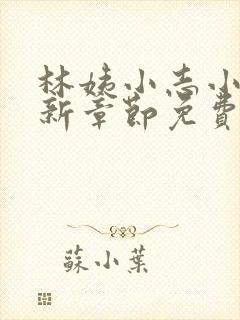 林姨小志小
新章節免費
蘇小葉